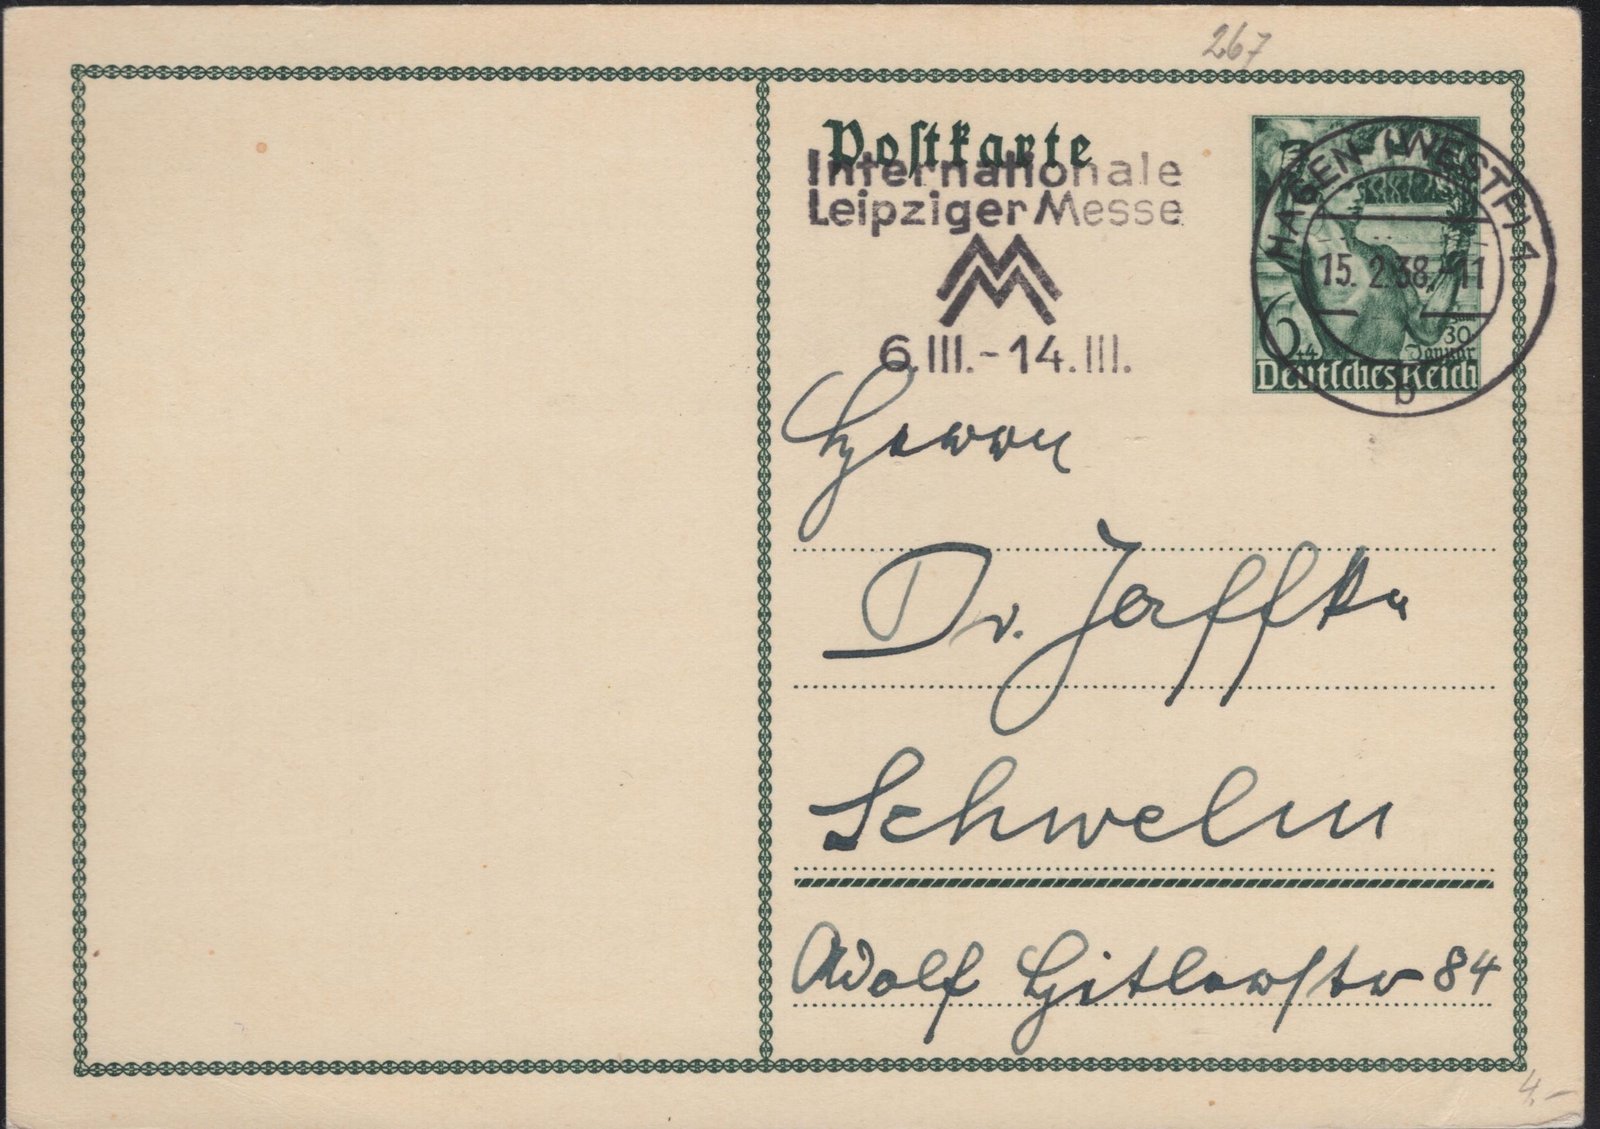 267
Postkarte
Internationale
Leipziger Messe
6.III.-14.III.
HAGEN (WESTF) 1
15. 2.38.-11
b
6+4
30
Januar
Deutsches Reich
Herrn
Dr. Jaffke
Schwelm
Adolf Hitlerstr 84
4.-